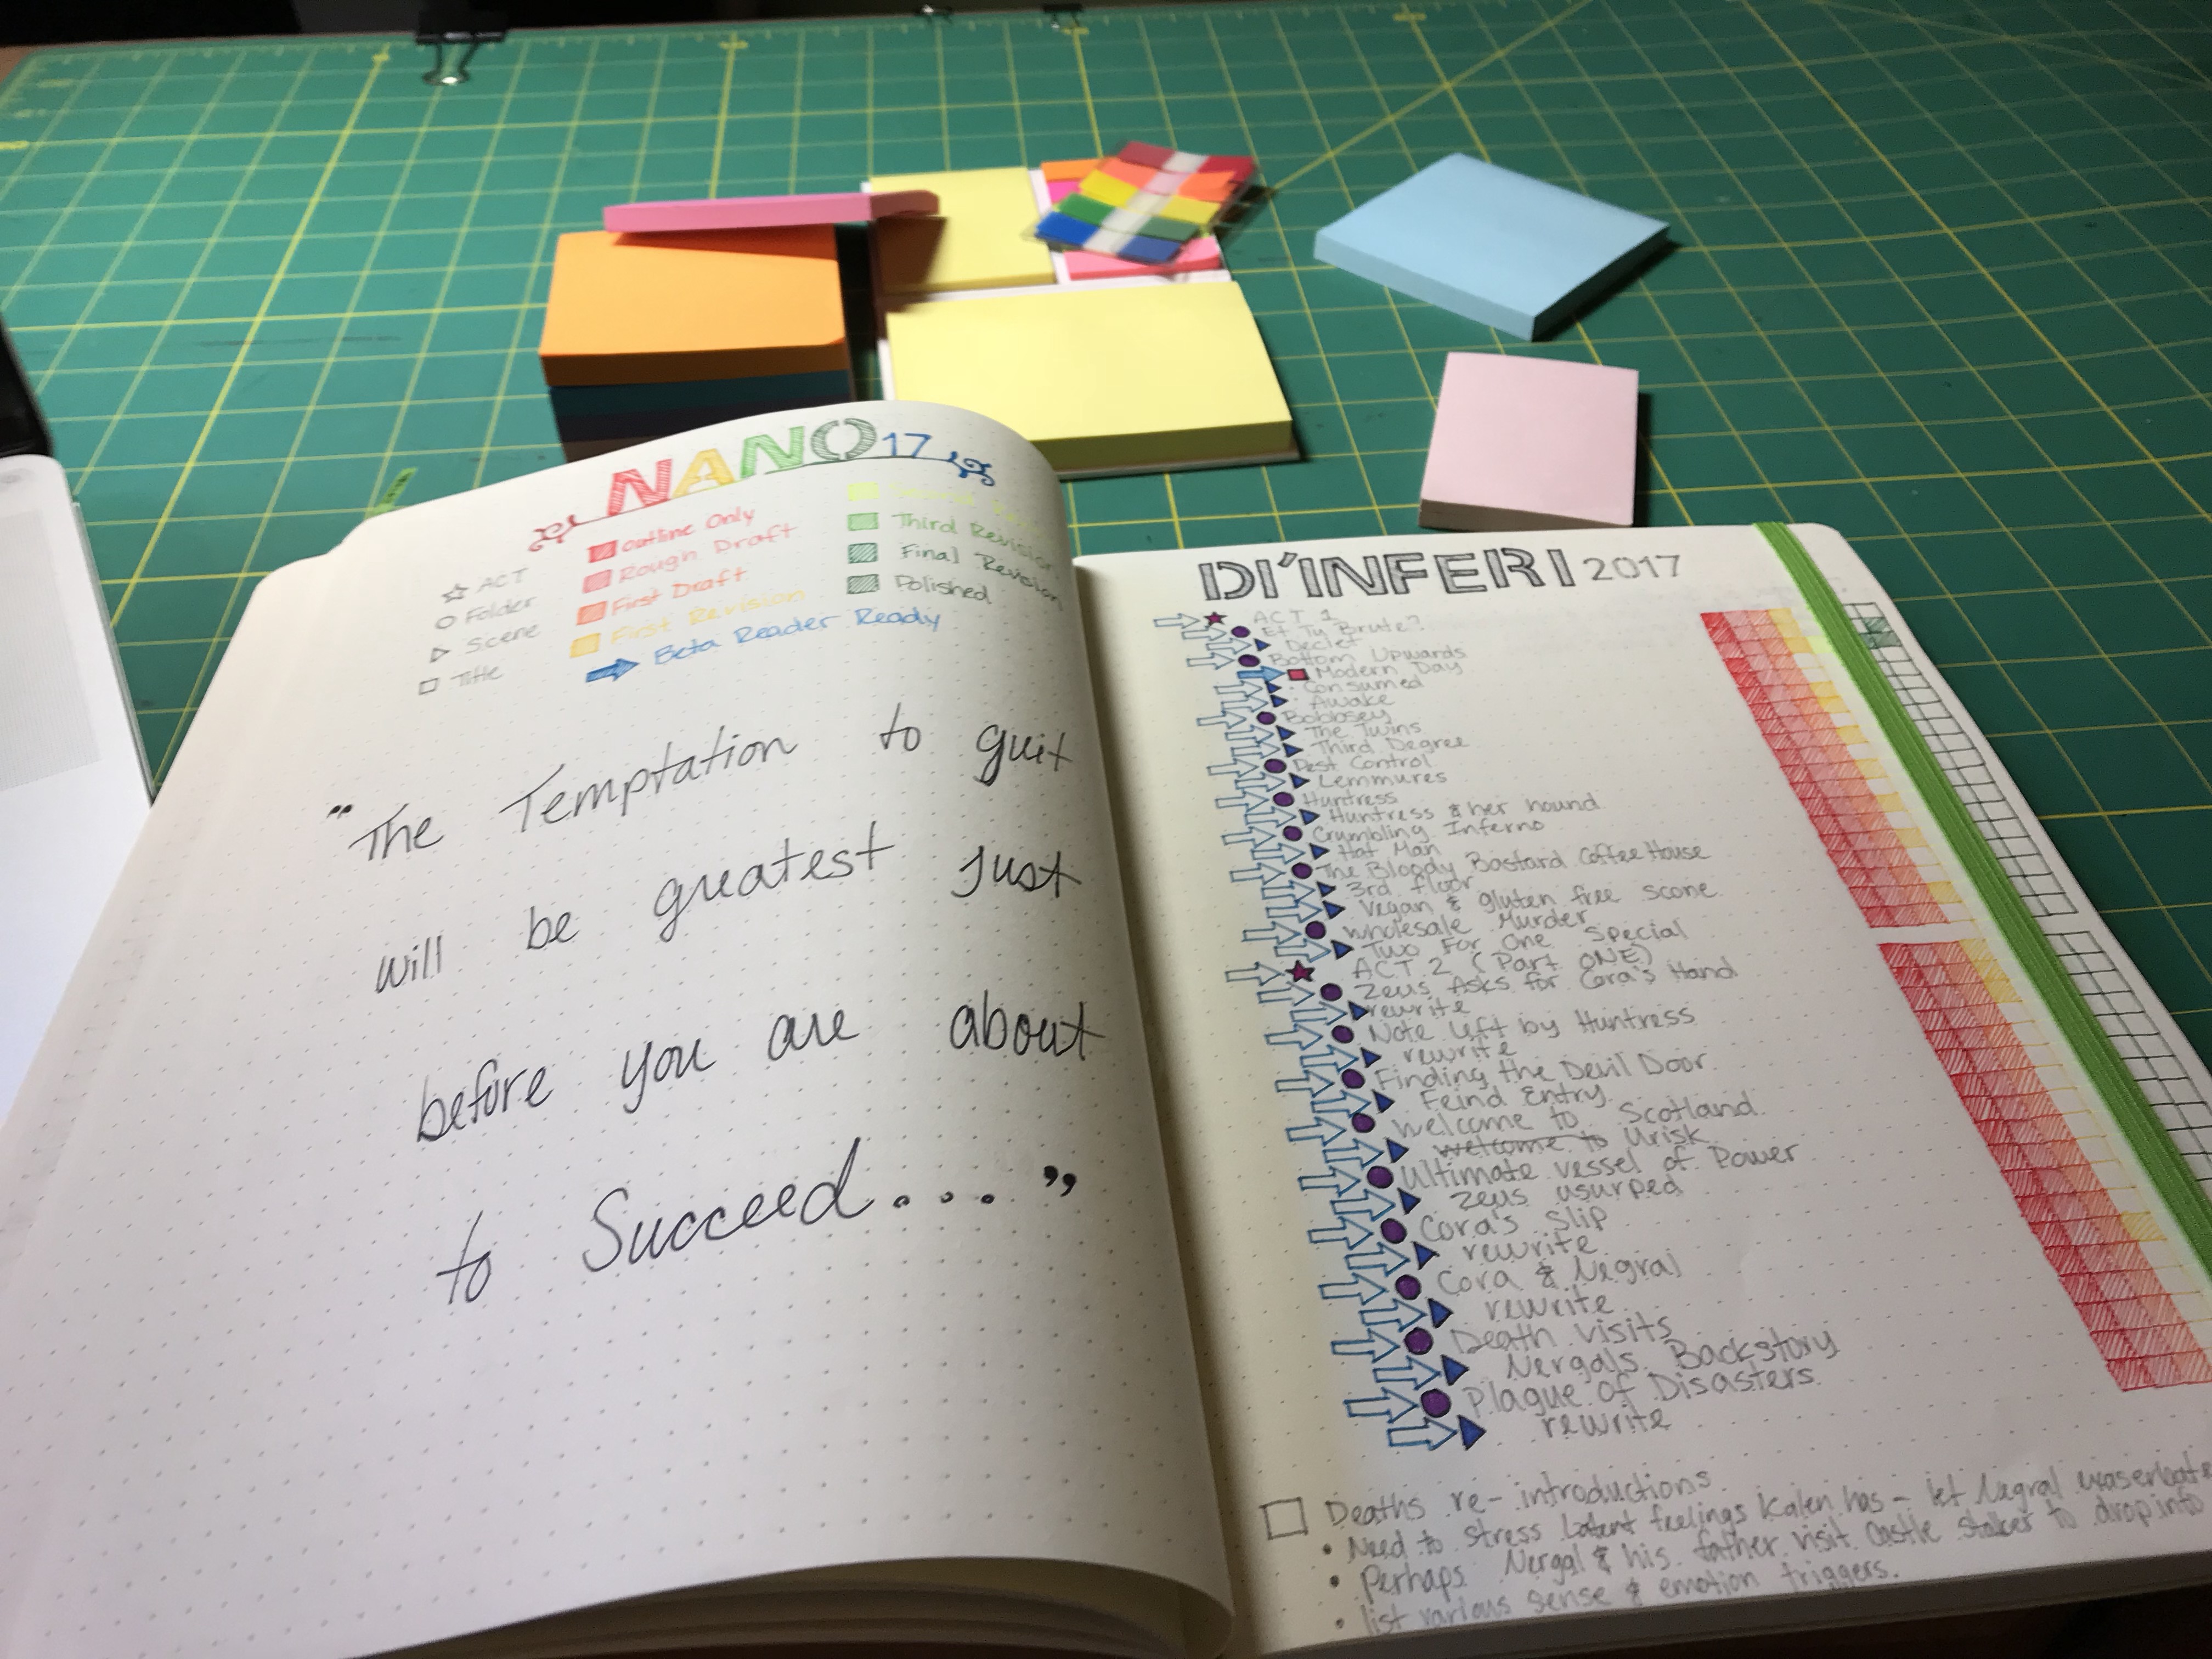 NANO 17
☆ ACT
○ Folder
▷ Scene
□ Title
Outline Only
Rough Draft
First Draft
First Revision
Beta Reader Ready
Second
Third Revision
Final Revision
Polished
"The Temptation to quit
will be greatest Just
before you are about
to Succeed...."
DI'INFERI 2017
ACT 1
Et Tu Brute?
Bottom Upwards
Modern Day
Consumed
Awake
Bobbsey
The Twins
Third Degree
Pest Control
Lemmures
Huntress
Huntress & her hound
Crumbling Inferno
Hat Man
The Bloody Bastard Coffee House
3rd floor
Vegan & gluten free scone
Wholesale Murder
Two For One Special
ACT 2 (Part ONE)
Zeus Asks for Cora's Hand
rewrite
Note left by Huntress
rewrite
Finding the Devil Door
Feind Entry
Welcome to Scotland
welcome to Urisk
Ultimate vessel of Power
Zeus usurped
Cora's Slip
rewrite
Cora & Negral
rewrite
Death visits
Nergals Backstory
Plague of Disasters
rewrite
□ Deaths re-introductions
• Need to stress latent feelings Kalen has - let Negral
• Perhaps Nergal & his father visit Castle Stalker to drop info
• list various sense & emotion triggers.